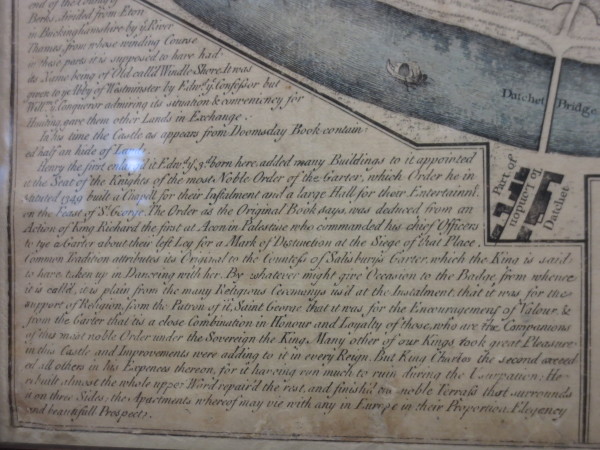 out of the County of
Berks, divided from Eton
in Buckinghamshire by yͤ River
Thames, from whose winding Course
in these parts it is supposed to have had
its Name being of Old call'd Windle Shore. It was
given to yͤ Abby of Westminster by Edwᵈ yͤ Confessor but
Willᵐ yͤ Conqueror admiring its situation & conveniency for
Hunting gave them other Lands in Exchange.
In his time the Castle as appears from Doomsday Book contain
ed half an hide of Land.
Henry the first enlarg'd it Edwᵈ yͤ 3ᵈ born here; added many Buildings to it appointed
it the Seat of the Knights of the most Noble Order of the Garter, which Order he in
stituted 1349 built a Chapell for their Installment and a large Hall for their Entertainmᵗ
on the Feast of Sᵗ George. The Order as the Original Book says, was deduced from an
Action of King Richard the first at Acon in Palestine who commanded his chief Officers
to tye a Garter about their left Leg for a Mark of Distinction at the Siege of that Place,
Common Tradition attributes its Original to the Countess of Salisbury's Garter, which the King is said
to have taken up in Dancing with her. By whatever might give Occasion to the Badge, from whence
it is call'd, it is plain from the many Religious Ceremonys us'd at the Instalment, that it was for the
support of Religion, from the Patron of it, Saint George that it was for the Encouragement of Valour, &
from the Garter that tis a close Combination in Honour and Loyalty of those, who are the Companions
of this most noble Order under the Sovereign the King. Many other of our Kings took great Pleasure
in this Castle and Improvements were adding to it in every Reign. But King Charles the second exceed
ed all others in his Expences thereon, for it having run much to ruin during the Usurpation; He
rebuilt almost the whole upper Ward repair'd the rest, and finish'd the noble Terrass that surrounds
it on three Sides: the Apartments whereof may vie with any in Europe in their Proportion Elegancy
and beautifull Prospect.
Datchet Bridge
Part of
yͤ Town of
Datchet